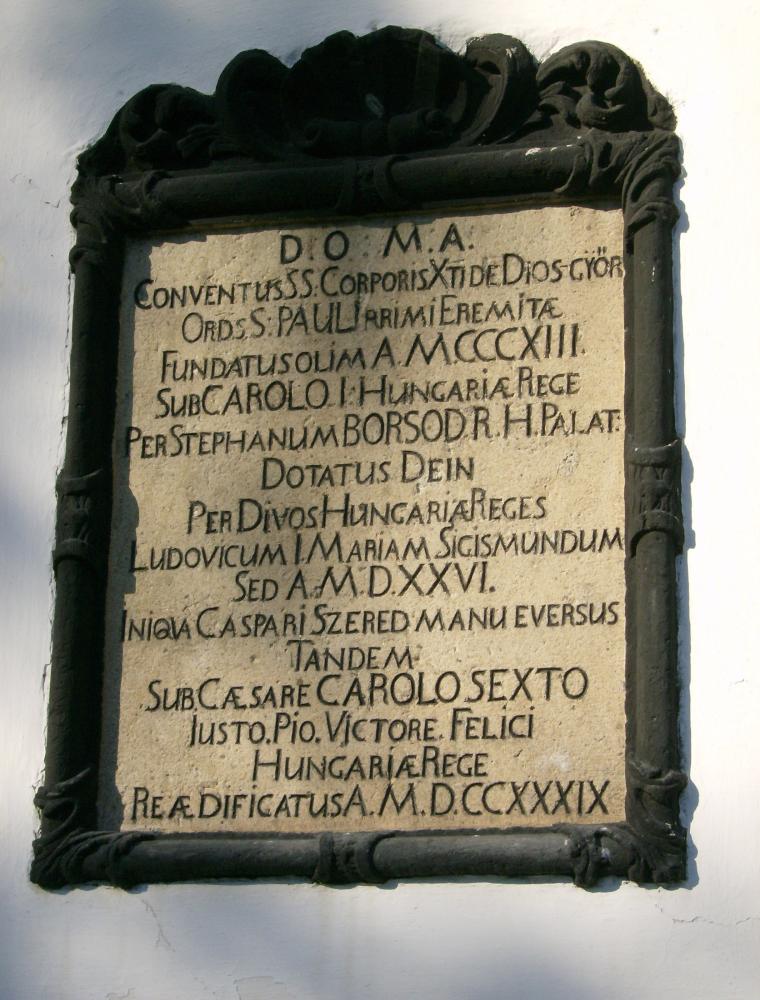 D.O.M.A.
CONVENTUS SS. CORPORIS XTI DE DIOS-GYÖR
ORD.S S. PAULI PRIMI EREMITÆ
FUNDATUS OLIM A. MCCCXIII.
SUB CAROLO I. HUNGARIÆ REGE
PER STEPHANUM BORSOD. R. H. PALAT:
DOTATUS DEIN
PER DIVOS HUNGARIÆ REGES
LUDOVICUM I. MARIAM SIGISMUNDUM
SED A. M.D.XXVI.
INIQVA CASPARI SZERED MANU EVERSUS
TANDEM
SUB. CÆSARE CAROLO SEXTO
IUSTO. PIO. VICTORE. FELICI
HUNGARIÆ REGE
REÆDIFICATUS A. M.D.CCXXXIX